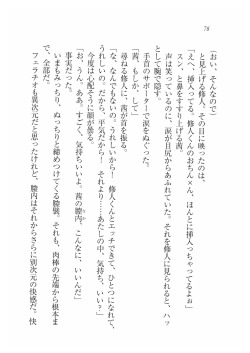 78
(おい、そんなので)
と見上げる修人、その目に映ったのは、
「えへへ、挿入ってる、修人くんのおち×ん、ほんとに挿入っちゃってるよぉ」
スンッと鼻をすすり上げる茜。
声は笑っているのに、涙が目尻からあふれていた。それを修人に見られると、ハッ
手首のサポーターで涙をぬぐった。
「茜、もしかし、して」
尋ねる修人に、茜が首を振る。
「な、なんでもないの。うれしいから……修人くんとエッチできて、ひとつになれて、
うれしいの。だから、平気だから! それより……あたしの中、気持ち、いい?」
今度は心配そうに顔が曇る。
「お、うん。ああ、すごく、気持ちいいよ。茜の膣内、こんなに、いいんだ」
事実だった。
いまもみっちり、ぬっちりと締めつけてくる膣襞。それも、肉棒の先端から根本ま
で、全部だ。
フェラチオも異次元だと思ったけれど、膣内はそれからさらに別次元の快感だ。快